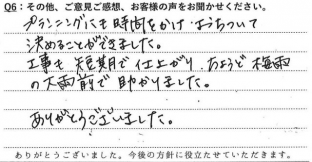 Q6：その他、ご意見ご感想、お客様の声をお聞かせください。
プランニングにも時間をかけ おちついて
決めることができました。
工事も短期で仕上がり、ちょうど梅雨
の大雨前で助かりました。
ありがとうございました。
ありがとうございました。今後の方針に役立たせていただきます。